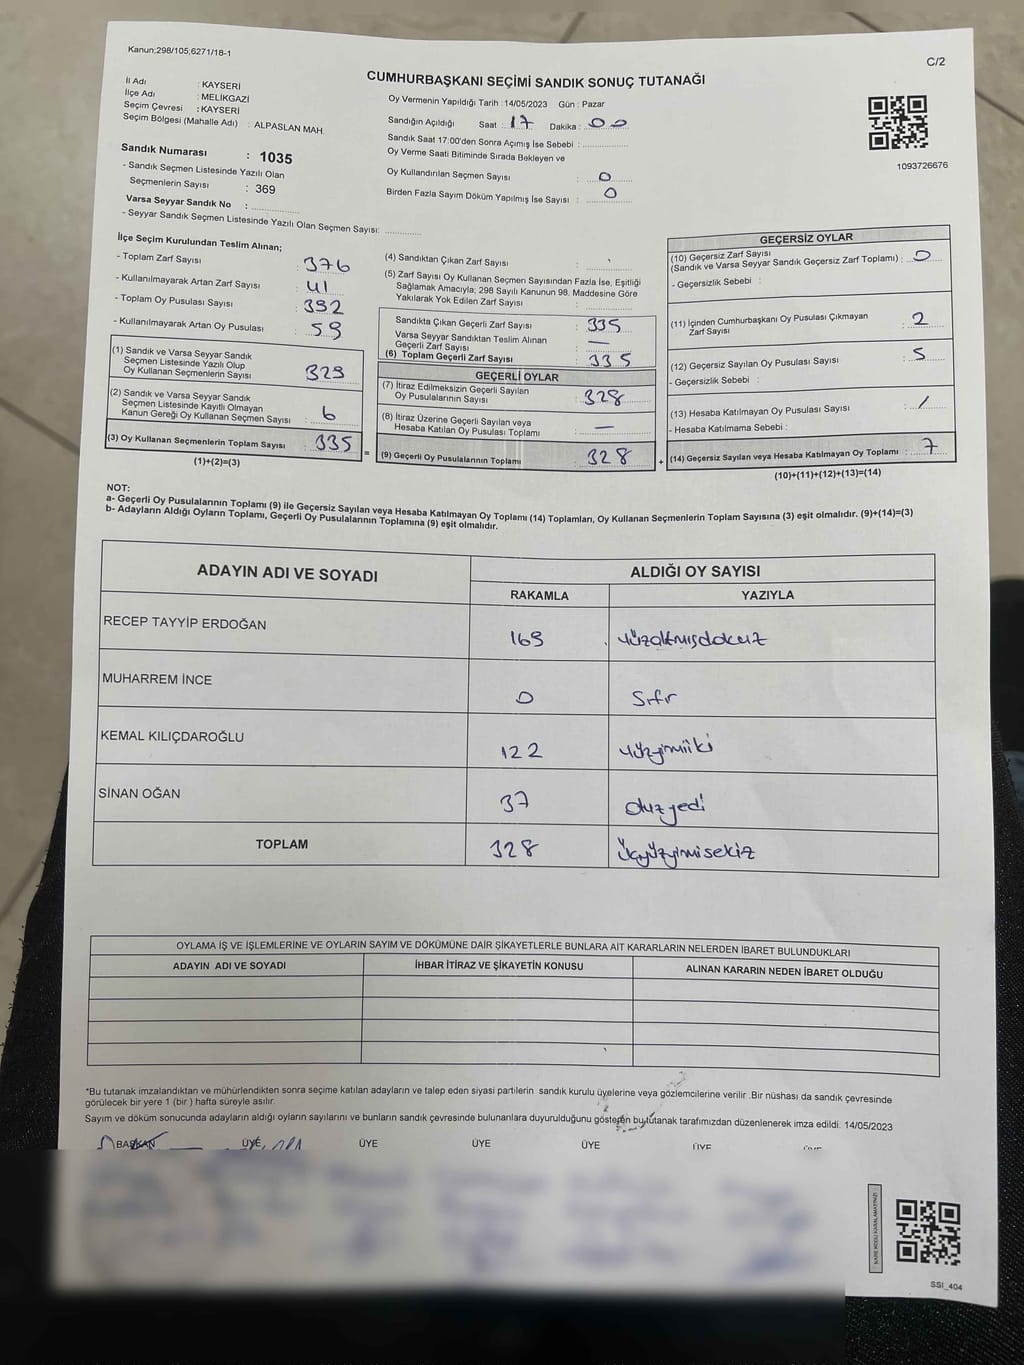 Kanun;298/105,6271/18-1
C/2
CUMHURBAŞKANI SEÇİMİ SANDIK SONUÇ TUTANAĞI
İl Adı : KAYSERİ
İlçe Adı : MELİKGAZİ
Seçim Çevresi : KAYSERİ
Seçim Bölgesi (Mahalle Adı) : ALPASLAN MAH.
Sandık Numarası : 1035
- Sandık Seçmen Listesinde Yazılı Olan
Seçmenlerin Sayısı : 369
Varsa Seyyar Sandık No :
- Seyyar Sandık Seçmen Listesinde Yazılı Olan Seçmen Sayısı:
Oy Vermenin Yapıldığı Tarih : 14/05/2023 Gün : Pazar
Sandığın Açıldığı Saat : 17 Dakika : 00
Sandık Saat 17:00'den Sonra Açımış İse Sebebi :
Oy Verme Saati Bitiminde Sırada Bekleyen ve
Oy Kullandırılan Seçmen Sayısı : 0
Birden Fazla Sayım Döküm Yapılmış İse Sayısı : 0
1093726676
İlçe Seçim Kurulundan Teslim Alınan;
- Toplam Zarf Sayısı : 376
- Kullanılmayarak Artan Zarf Sayısı : 41
- Toplam Oy Pusulası Sayısı : 392
- Kullanılmayarak Artan Oy Pusulası : 59
(1) Sandık ve Varsa Seyyar Sandık
Seçmen Listesinde Yazılı Olup
Oy Kullanan Seçmenlerin Sayısı : 329
(2) Sandık ve Varsa Seyyar Sandık
Seçmen Listesinde Kayıtlı Olmayan
Kanun Gereği Oy Kullanan Seçmen Sayısı : 6
(3) Oy Kullanan Seçmenlerin Toplam Sayısı : 335
(1)+(2)=(3)
(4) Sandıktan Çıkan Zarf Sayısı :
(5) Zarf Sayısı Oy Kullanan Seçmen Sayısından Fazla İse, Eşitliği
Sağlamak Amacıyla; 298 Sayılı Kanunun 98. Maddesine Göre
Yakılarak Yok Edilen Zarf Sayısı :
Sandıkta Çıkan Geçerli Zarf Sayısı : 335
Varsa Seyyar Sandıktan Teslim Alınan
Geçerli Zarf Sayısı : —
(6) Toplam Geçerli Zarf Sayısı : 335
GEÇERLİ OYLAR
(7) İtiraz Edilmeksizin Geçerli Sayılan
Oy Pusulalarının Sayısı : 328
(8) İtiraz Üzerine Geçerli Sayılan veya
Hesaba Katılan Oy Pusulası Toplamı : —
= (9) Geçerli Oy Pusulalarının Toplamı : 328
GEÇERSİZ OYLAR
(10) Geçersiz Zarf Sayısı
(Sandık ve Varsa Seyyar Sandık Geçersiz Zarf Toplamı) : 0
- Geçersizlik Sebebi :
(11) İçinden Cumhurbaşkanı Oy Pusulası Çıkmayan
Zarf Sayısı : 2
(12) Geçersiz Sayılan Oy Pusulası Sayısı : 5
- Geçersizlik Sebebi :
(13) Hesaba Katılmayan Oy Pusulası Sayısı : /
- Hesaba Katılmama Sebebi :
+ (14) Geçersiz Sayılan veya Hesaba Katılmayan Oy Toplamı : 7
(10)+(11)+(12)+(13)=(14)
NOT:
a- Geçerli Oy Pusulalarının Toplamı (9) ile Geçersiz Sayılan veya Hesaba Katılmayan Oy Toplamı (14) Toplamları, Oy Kullanan Seçmenlerin Toplam Sayısına (3) eşit olmalıdır. (9)+(14)=(3)
b- Adayların Aldığı Oyların Toplamı, Geçerli Oy Pusulalarının Toplamına (9) eşit olmalıdır.
ADAYIN ADI VE SOYADI ALDIĞI OY SAYISI
RAKAMLA YAZIYLA
RECEP TAYYİP ERDOĞAN 169 yüzaltmışdokuz
MUHARREM İNCE 0 Sıfır
KEMAL KILIÇDAROĞLU 122 yüzyirmiiki
SİNAN OĞAN 37 otuzyedi
TOPLAM 328 üçyüzyirmisekiz
OYLAMA İŞ VE İŞLEMLERİNE VE OYLARIN SAYIM VE DÖKÜMÜNE DAİR ŞİKAYETLERLE BUNLARA AİT KARARLARIN NELERDEN İBARET BULUNDUKLARI
ADAYIN ADI VE SOYADI İHBAR İTİRAZ VE ŞİKAYETİN KONUSU ALINAN KARARIN NEDEN İBARET OLDUĞU
*Bu tutanak imzalandıktan ve mühürlendikten sonra seçime katılan adayların ve talep eden siyasi partilerin sandık kurulu üyelerine veya gözlemcilerine verilir .Bir nüshası da sandık çevresinde
görülecek bir yere 1 (bir ) hafta süreyle asılır.
Sayım ve döküm sonucunda adayların aldığı oyların sayılarını ve bunların sandık çevresinde bulunanlara duyurulduğunu gösteren bu tutanak tarafımızdan düzenlenerek imza edildi. 14/05/2023
BAŞKAN ÜYE ÜYE ÜYE ÜYE ÜYE ÜYE
KARE KODU KARALAMAYINIZ!
SSI_404